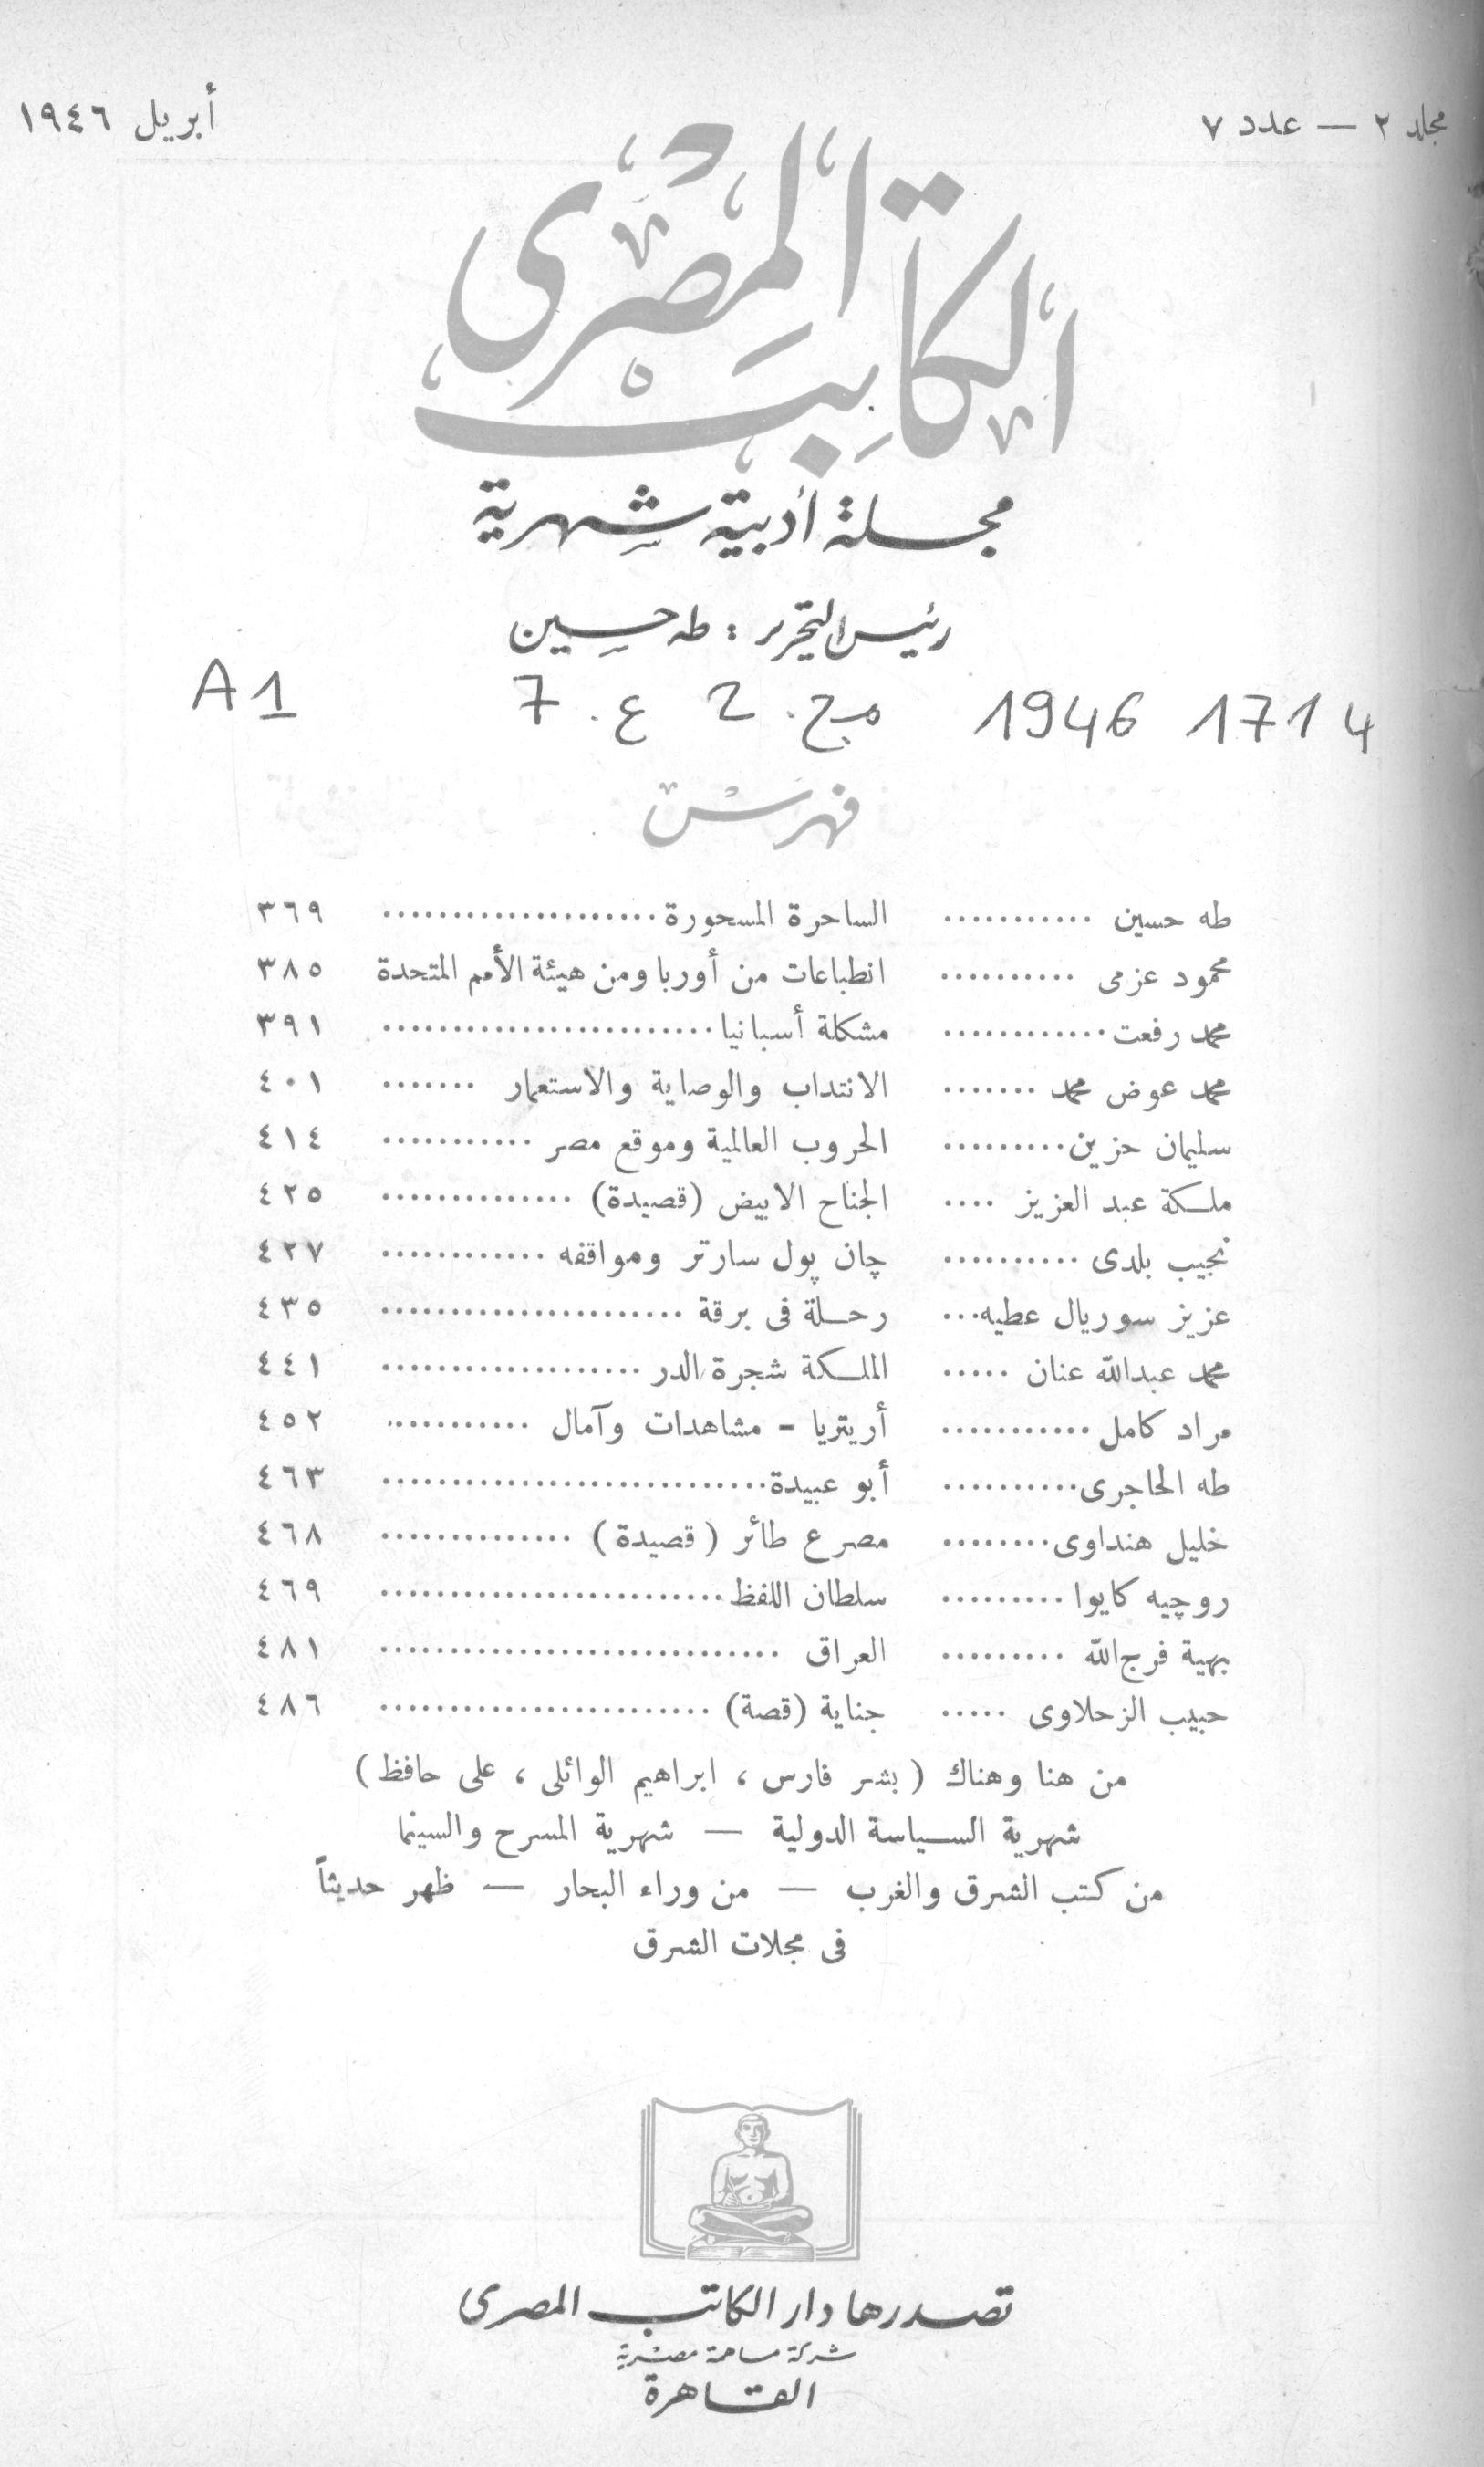 مجلد ٢ — عدد ٧
أبريل ١٩٤٦
الكاتب المصرى
مجلة أدبية شهرية
رئيس التحرير : طه حسين
A1 7 .ع 2 .مج 1946 1714
فهرس
طه حسين ........... الساحرة المسحورة .................... ٣٦٩
محمود عزمى .......... انطباعات من أوربا ومن هيئة الأمم المتحدة ٣٨٥
محمد رفعت ............ مشكلة أسبانيا ........................ ٣٩١
محمد عوض محمد ....... الانتداب والوصاية والاستعمار ....... ٤٠١
سليمان حزين ......... الحروب العالمية وموقع مصر ........... ٤١٤
ملكة عبد العزيز .... الجناح الابيض (قصيدة) .............. ٤٢٥
نجيب بلدى .......... چان پول سارتر ومواقفه ............ ٤٢٧
عزيز سوريال عطيه ... رحلة فى برقة ...................... ٤٣٥
محمد عبدالله عنان ..... الملكة شجرة الدر ................... ٤٤١
مراد كامل ........... أريتريا - مشاهدات وآمال ........... ٤٥٢
طه الحاجرى .......... أبو عبيدة ............................ ٤٦٣
خليل هنداوى ........ مصرع طائر (قصيدة) .............. ٤٦٨
روچيه كايوا ......... سلطان اللفظ ......................... ٤٦٩
بهية فرج الله ......... العراق ............................. ٤٨١
حبيب الزحلاوى ..... جناية (قصة) ........................ ٤٨٦
من هنا وهناك ( بشر فارس ، ابراهيم الوائلى ، على حافظ )
شهرية السياسة الدولية — شهرية المسرح والسينما
من كتب الشرق والغرب — من وراء البحار — ظهر حديثاً
فى مجلات الشرق
تصدرها دار الكاتب المصرى
شركة مساهمة مصرية
القاهرة